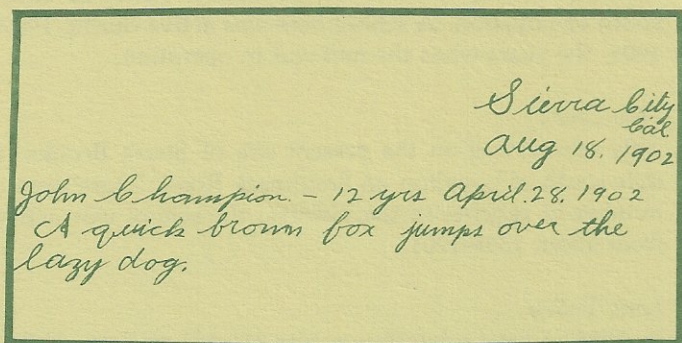 Sierra City
Cal.
Aug 18. 1902
John Champion. - 12 yrs April. 28. 1902
A quick brown fox jumps over the
lazy dog.